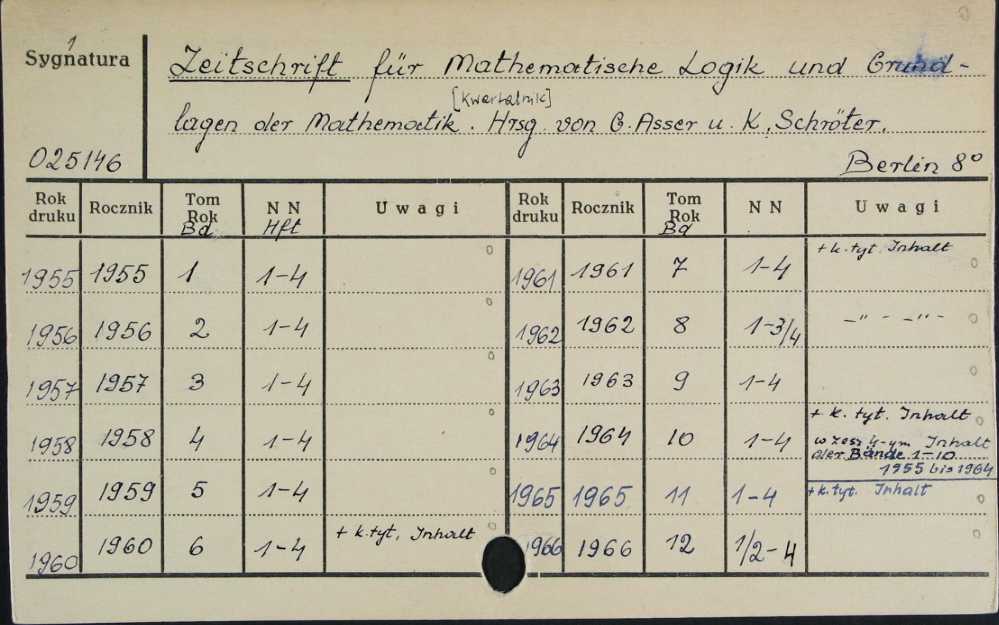 1
Sygnatura
Zeitschrift für Mathematische Logik und Grund-
[Kwartalnik]
lagen der Mathematik. Hrsg von G. Asser u. K. Schröter.
025146
Berlin 8°
Rok druku Rocznik Tom Rok Bd NN Hft Uwagi Rok druku Rocznik Tom Rok Bd NN Uwagi
1955 1955 1 1-4 1961 1961 7 1-4 + k. tyt. Inhalt
1956 1956 2 1-4 1962 1962 8 1-3/4 -"- -"-
1957 1957 3 1-4 1963 1963 9 1-4
1958 1958 4 1-4 1964 1964 10 1-4 + k. tyt. Inhalt
w zesz 4-ym Inhalt
der Bände 1-10
1955 bis 1964
1959 1959 5 1-4 1965 1965 11 1-4 + k. tyt. Inhalt
1960 1960 6 1-4 + k. tyt. Inhalt 1966 1966 12 1/2-4